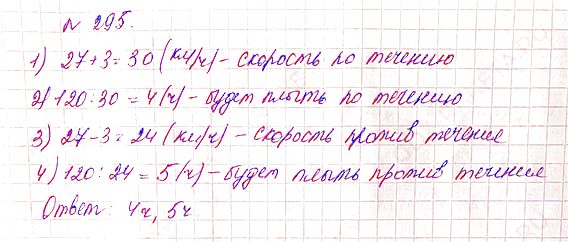 № 295.
1) 27+3=30 (км/ч) – скорость по течению
2) 120:30=4 (ч) – будет плыть по течению
3) 27-3=24 (км/ч) – скорость против течения
4) 120:24=5 (ч) – будет плыть против течения
Ответ: 4ч, 5ч